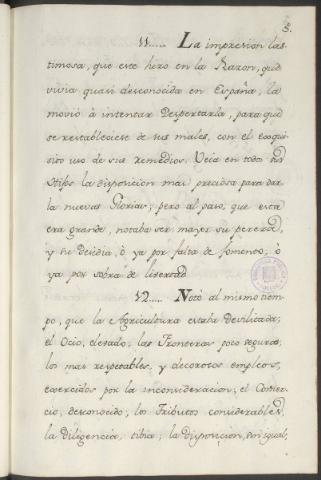 5.
11..... La impresion las-
timosa, que este hizo en la Razon, que
vivia quasi desconocida en España, la
movió á intentar Despertarla, para que
se restableciese de sus males, con el exqui-
sito uso de sus remedios. Veia en todos sus
la disposicion mas preciosa para dar-
la nuevas Glorias; pero al paso, que esta
era grande, notaba ser mayor su pereza,
y desidia, ò ya por falta de fomento, ò
ya por sobra de libertad
12..... Notó al mismo tiem-
po, que la Agricultura estaba Devilitada;
el Ocio, elevado; las Fronteras poco seguras;
los mas respetables, y decorosos empleos,
exercidos por la inconsideracion; el Comer-
cio, desconocido; los Tributos considerables;
la Diligencia, tibia; la Disposicion, sin igual;